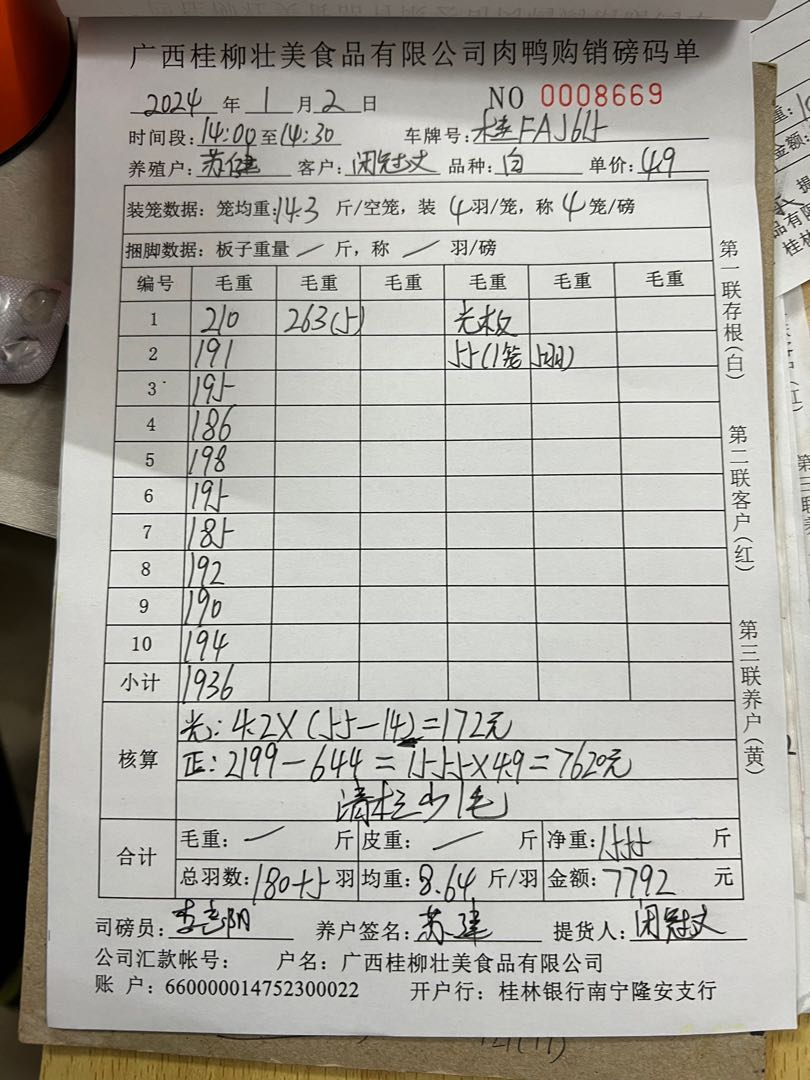 广西桂柳壮美食品有限公司肉鸭购销磅码单
2024 年 1 月 2 日 NO 0008669
时间段: 14:00 至 14:30 车牌号: 桂FAJ615
养殖户: 苏健 客户: 闭冠文 品种: 白 单价: 4.9
装笼数据: 笼均重: 14.3 斤/空笼, 装 4 羽/笼, 称 4 笼/磅
捆脚数据: 板子重量 / 斤, 称 / 羽/磅
编号 毛重 毛重 毛重 毛重 毛重 毛重
1 210 263(5) 光板
2 191 55(1笼5羽)
3 195
4 186
5 198
6 195
7 185
8 192
9 190
10 194
小计 1936
核算
光: 4.2×(55-14)=172元
正: 2199-644=1555×4.9=7620元
清栏少1毛
合计
毛重: / 斤 皮重: / 斤 净重: 1555 斤
总羽数: 180+5 羽 均重: 8.64 斤/羽 金额: 7792 元
司磅员: 阳 养户签名: 苏健 提货人: 闭冠文
公司汇款帐号: 户名: 广西桂柳壮美食品有限公司
账 户: 660000014752300022 开户行: 桂林银行南宁隆安支行
第一联存根(白)
第二联客户(红)
第三联养户(黄)